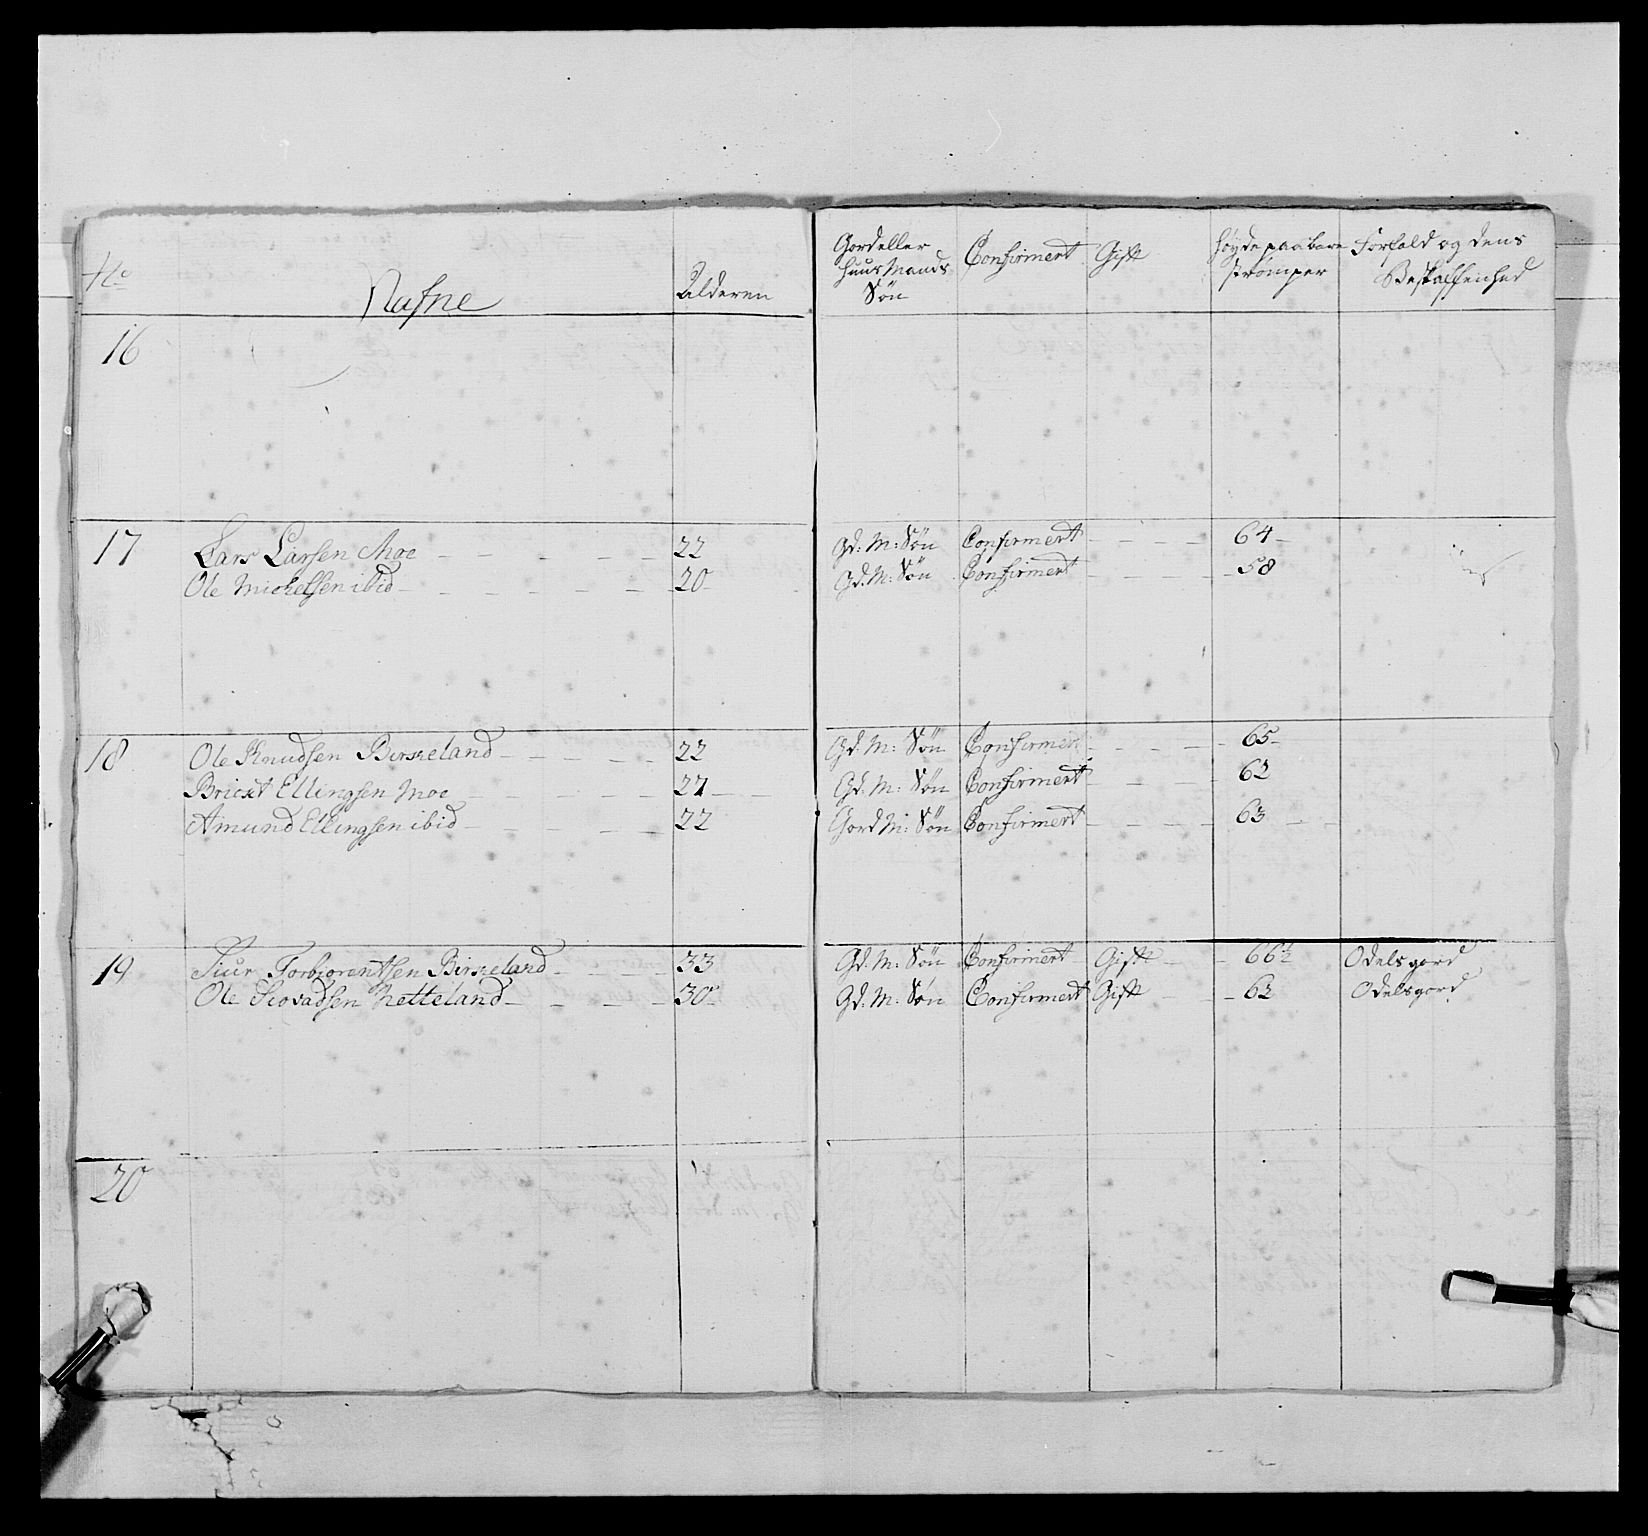 No Nafne Alderen Gord eller Huus Mands Søn Confirmert Gift Høyde paa bare strømper Forfald og dens Beskaffenhed
16
17 Lars Larsen Moe 22 Gd: M: Søn Confirmert 64
Ole Michelsen ibid 20 Gd: M: Søn Confirmert 58
18 Ole Knudsen Birkeland 22 Gd: M: Søn Confirmert 65
Brickt Ellingsen Moe 27 Gd: M: Søn Confirmert 62
Amund Ellingsen ibid 22 Gord M: Søn Confirmert 63
19 Siur Torbiørentsen Birkeland 33 Gd: M: Søn Confirmert Gift 66½ Odelsgord
Ole Netteland 30 Gd: M: Søn Confirmert Gift 62 Odelsgord
20